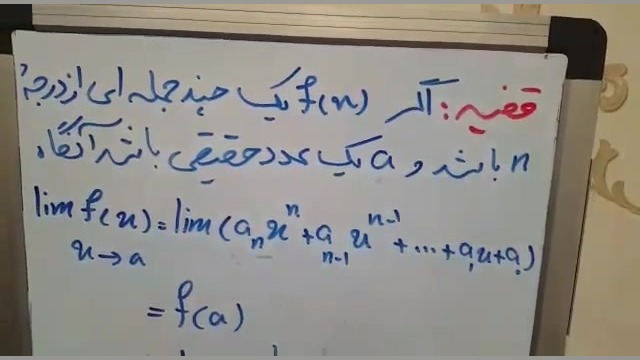 قضیه: اگر f(x) یک چند جمله ای از درجهٔ
n باشد و a یک عدد حقیقی باشد آنگاه
lim f(x) = lim (aₙxⁿ + aₙ₋₁xⁿ⁻¹ + ... + a₁x + a₀)
x → a
= f(a)